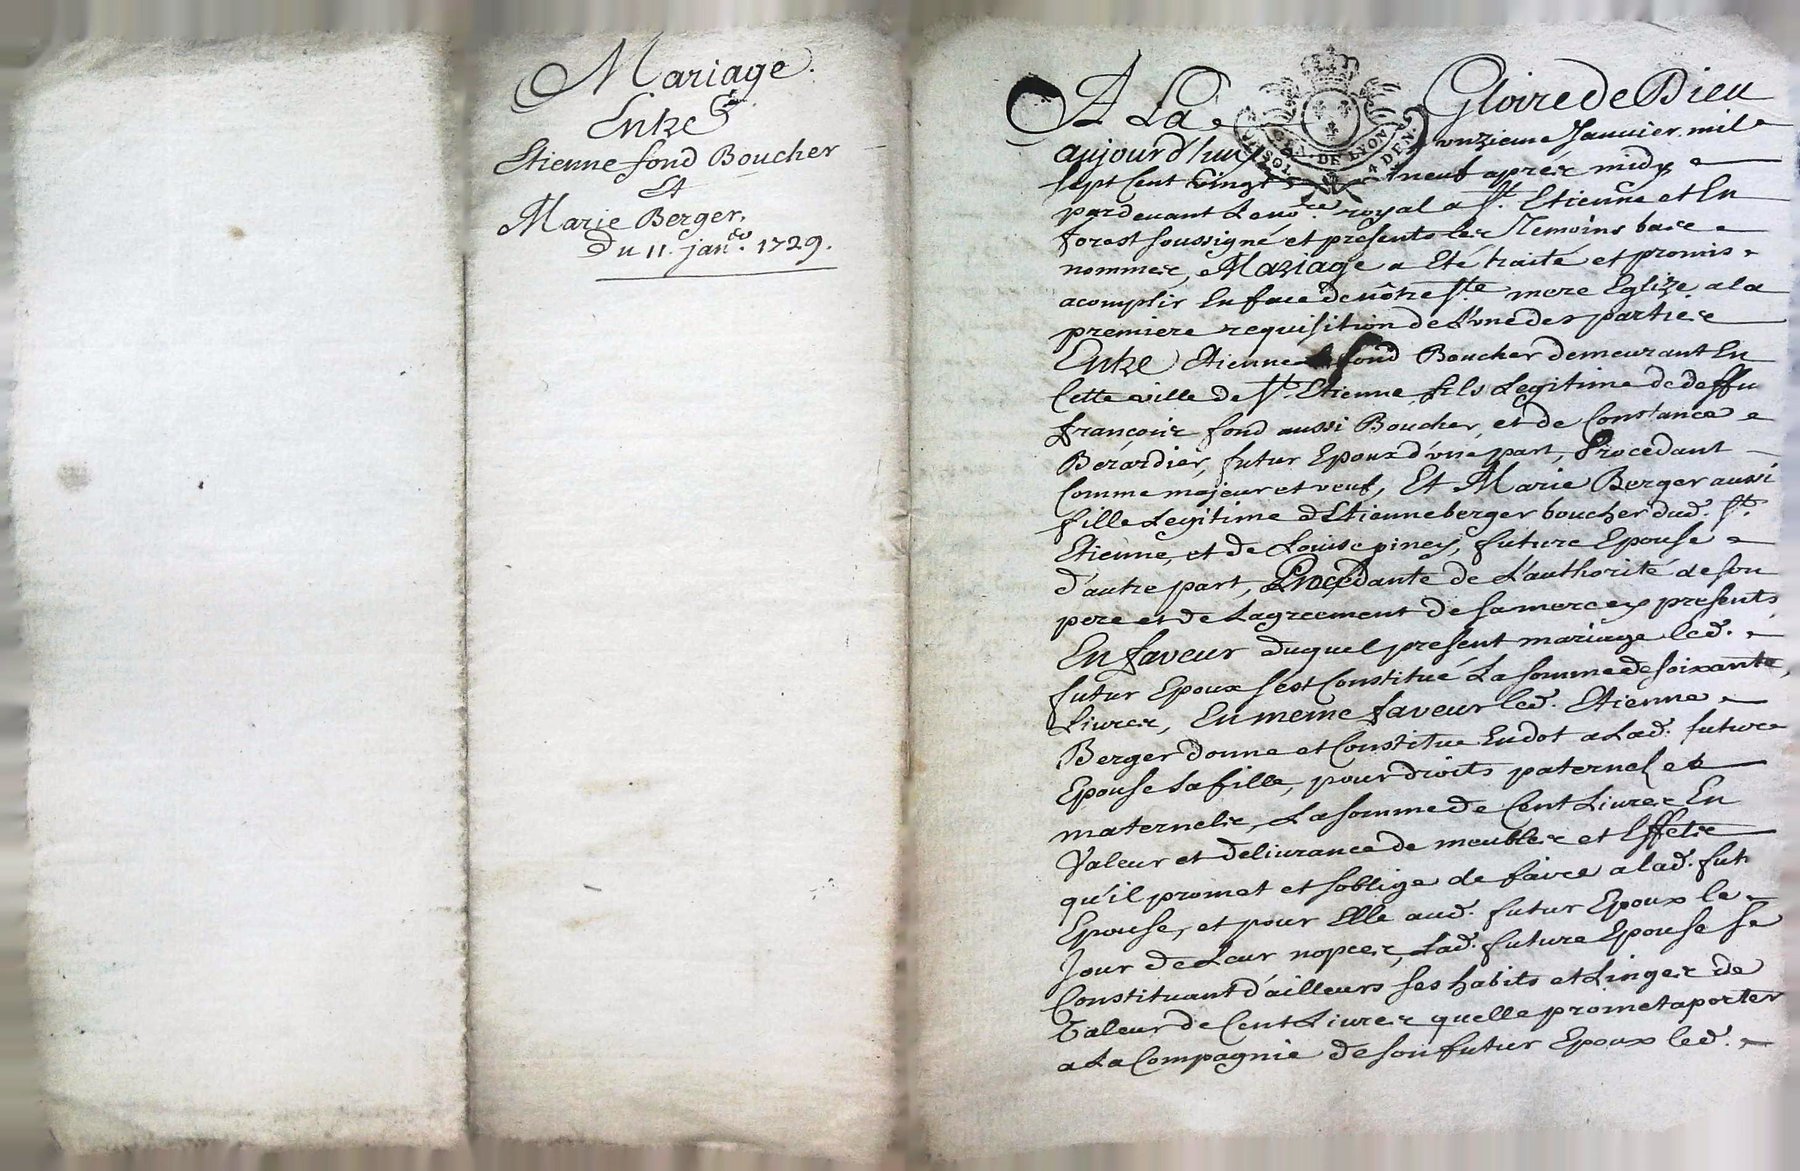 Mariage.
Entre
Etienne fond Boucher
Et
Marie Berger,
Du 11. janer. 1729.
A La Gloire de Dieu
aujourd'huy onzieme Janvier mil
sept Cent vingt neuf apres midy
pardevant Le nore. royal a St. Etienne et En
forest soussigné et presents les Temoins bas
nommez, Mariage a Eté traité et promis
acomplir En face de nôtre Ste. mere Eglize a la
premiere requisition de L'une des parties
Entre Etienne fond Boucher demeurant En
Cette ville de St. Etienne, fils Legitime de deffu
françois fond aussi Boucher, et de Constance
Berardier, futur Epoux d'une part, Procedant
Comme majeur et veuf, Et Marie Berger aussi
fille Legitime d'Etienne berger boucher dud. St.
Etienne, et de Louise piney, future Epouse
d'autre part, Procedante de L'authorité de son
pere et de Lagreement de sa mere cy presents
En faveur duquel present mariage led.
futur Epoux s'est Constitué La somme de soixante
Livres, En meme faveur led. Etienne
Berger donne et Constitue En dot a Lad. future
Epouse sa fille, pour droits paternels et
maternels, La somme de Cent Livres En
Valeur et delivrance de meubles et Effets
qu'il promet et s'oblige de faire a lad. fut
Epouse, et pour Elle aud. futur Epoux le
Jour de Leur nopces, Lad. future Epouse se
Constituant d'ailleurs ses habits et Linges de
Valeur de Cent Livres quelle promet aporter
a La Compagnie de son futur Epoux led.
GEN. DE LYON